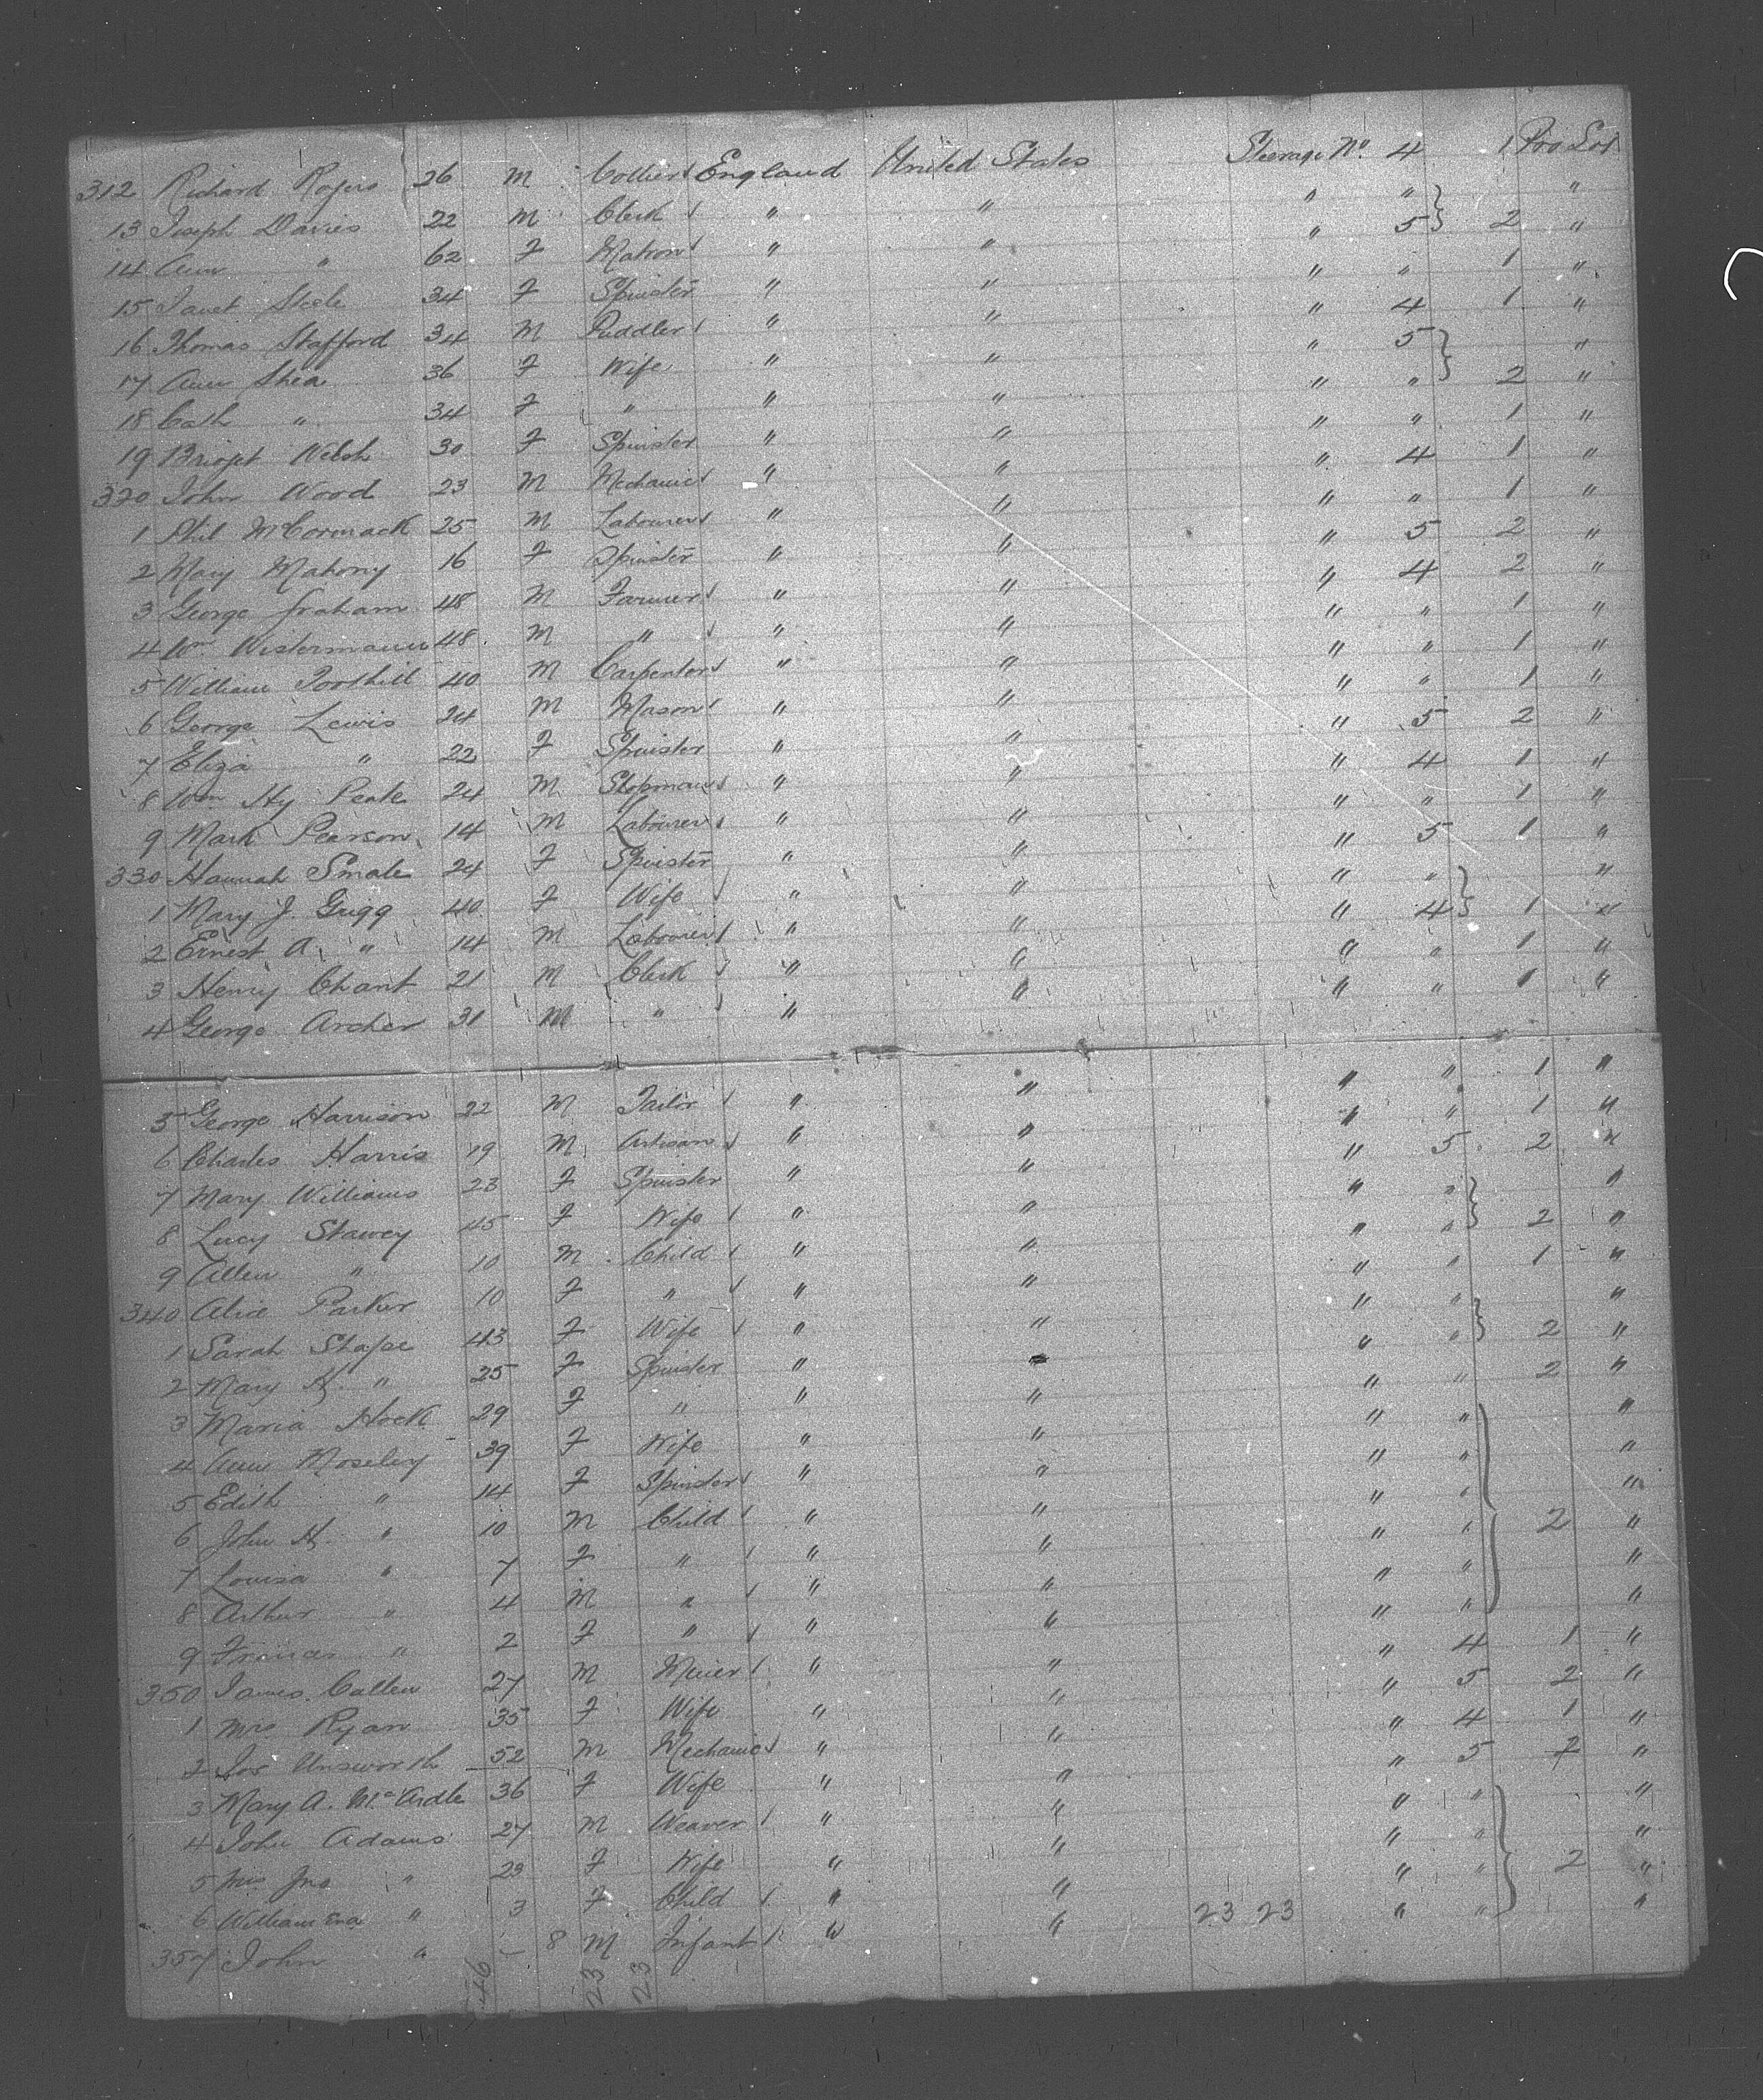 312 Richard Rogers 26 M Collier England United States Steerage No. 4 1 Pro Sot
13 Joseph Davies 22 M Clerk " " " "
14 Ann " 62 F Matron " " " 5 2 "
15 Janet Steele 34 F Spinster " " " " 1 "
16 Thomas Stafford 34 M Puddler " " " 4 1 "
17 Ann Shea 36 F Wife " " " 5 "
18 Cath " 34 F " " " " " 2 "
19 Bridget Welsh 30 F Spinster " " " " 1 "
320 John Wood 23 M Mechanic " " " 4 1 "
1 Phil McCormack 25 M Labourer " " " " 1 "
2 Mary Mahony 16 F Spinster " " " 5 2 "
3 George Graham 48 M Farmer " " " 4 2 "
4 Wm Westermann 48 M " " " " " 1 "
5 William Toothill 40 M Carpenter " " " " 1 "
6 George Lewis 24 M Mason " " " " 1 "
7 Eliza " 22 F Spinster " " " 5 2 "
8 Wm Hy Peake 24 M Shopman " " " 4 1 "
9 Mark Pearson 14 M Labourer " " " " 1 "
330 Hannah Smale 24 F Spinster " " " 5 1 "
1 Mary J. Grigg 40 F Wife " " " " "
2 Ernest A. " 14 M Labourer " " " 4 1 "
3 Henry Chant 21 M Clerk " " " " 1 "
4 George Archer 31 M " " " " " 1 "
5 George Harrison 22 M Tailor " " " " 1 "
6 Charles Harris 19 M Artisan " " " " 1 "
7 Mary Williams 23 F Spinster " " " 5 2 "
8 Lucy Stawey 45 F Wife " " " " "
9 Allen " 10 M Child " " " " 2 "
340 Alice Parker 10 F " " " " " 1 "
1 Sarah Shape 43 F Wife " " " " "
2 Mary H. " 25 F Spinster " " " " 2 "
3 Maria Hock 29 F " " " " " 2 "
4 Ann Moseley 39 F Wife " " " " "
5 Edith " 14 F Spinster " " " " "
6 John H. " 10 M Child " " " " "
7 Louisa " 7 F " " " " " 2 "
8 Arthur " 4 M " " " " " "
9 Frances " 2 F " " " " " "
350 James Callen 27 M Miner " " " 4 1 "
1 Mrs Ryan 35 F Wife " " " 5 2 "
2 Jos Unsworth 52 M Mechanic " " " 4 1 "
3 Mary A. McArdle 36 F Wife " " " 5 2 "
4 John Adams 27 M Weaver " " " " "
5 Mrs Jno " 23 F Wife " " " " "
6 Williamina " 3 F Child " " " " 2 "
357 John " 8 M Infant " " 23 23 " " "
46 23 23